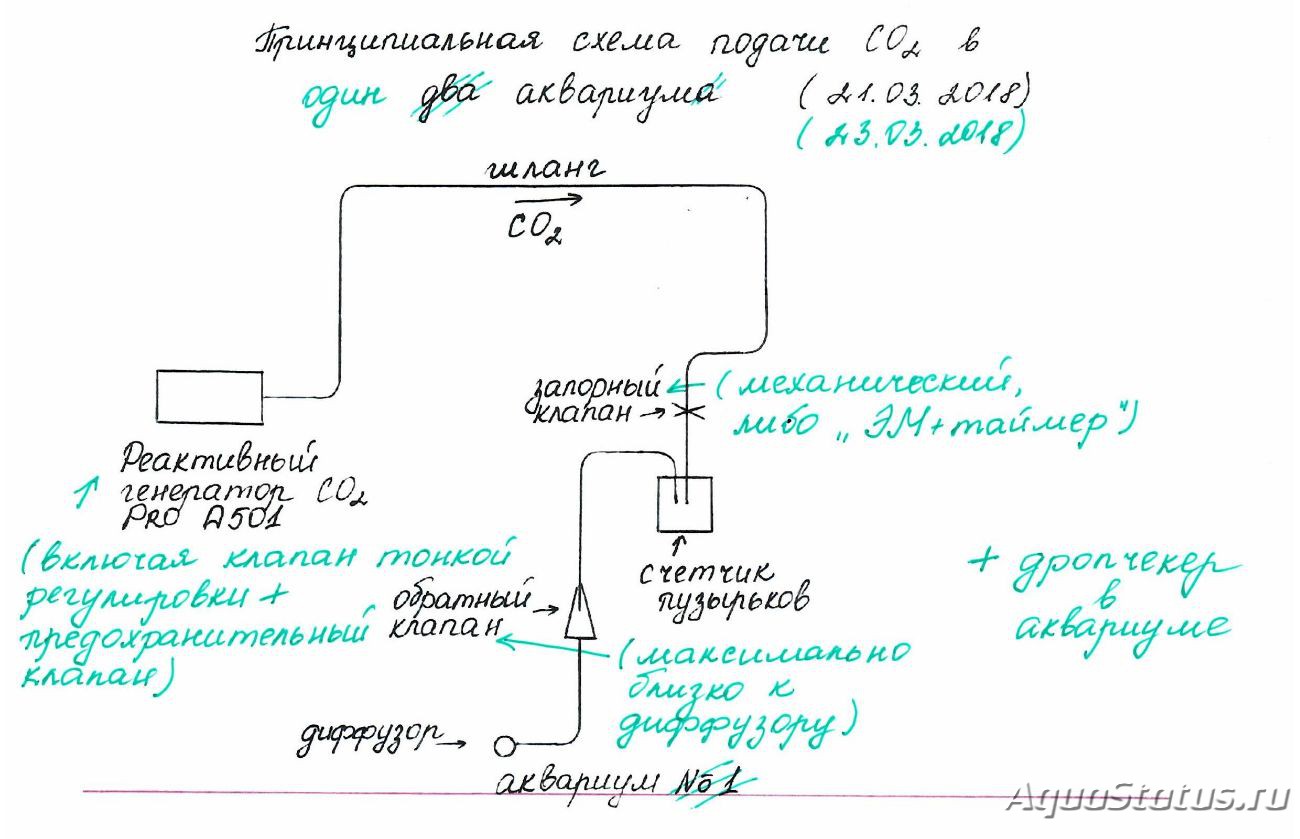 Принципиальная схема подачи CO2 в
один два аквариума (21.03.2018)
(23.03.2018)
шланг
CO2
запорный
клапан
(механический,
либо „ЭМ+таймер")
Реактивный
генератор CO2
PRO A501
(включая клапан тонкой
регулировки +
предохранительный
клапан)
счетчик
пузырьков
+ дропчекер
в
аквариуме
обратный
клапан
(максимально
близко к
диффузору)
диффузор
аквариум №1
AquaStatus.ru